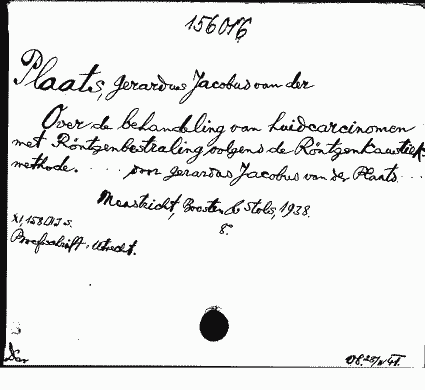 156016
Plaats, Gerardus Jacobus van der
Over de behandeling van huidcarcinomen
met Röntgenbestraling volgens de Röntgenkaustiek-
methode. . . . . door Gerardus Jacobus van der Plaats . . .
Maastricht, Boosten & Stols, 1938.
8°.
XI, 158
Proefschrift, Utrecht.